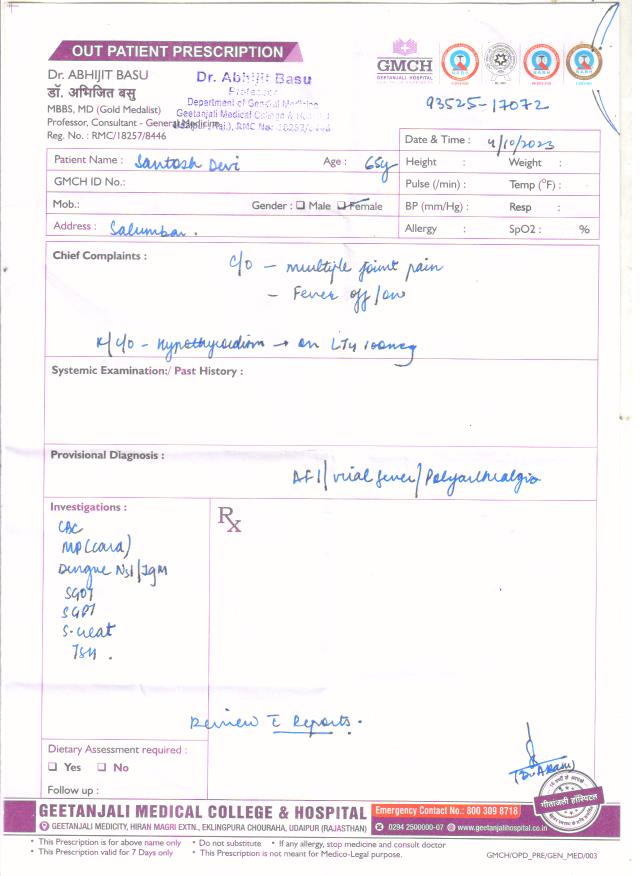 OUT PATIENT PRESCRIPTION
GMCH
GEETANJALI HOSPITAL
Dr. ABHIJIT BASU
डॉ. अभिजित बसु
MBBS, MD (Gold Medalist)
Professor, Consultant - General Medicine
Reg. No. : RMC/18257/8446
Dr. Abhijit Basu
Professor
Department of General Medicine
Geetanjali Medical College & Hospital
Udaipur (Raj.), RMC No. 18257/8446
93525-17072
Date & Time : 4/10/2023
Patient Name : Santosh Devi Age : 65y
Height : Weight :
GMCH ID No.:
Pulse (/min) : Temp (°F) :
Mob.: Gender : ☐ Male ☑ Female
BP (mm/Hg) : Resp :
Address : Salumbar .
Allergy : SpO2 : %
Chief Complaints :
c/o - multiple joint pain
- Fever off/on
K/c/o - Hypothyroidism → on LT4 100mcg
Systemic Examination:/ Past History :
Provisional Diagnosis :
AFI/viral fever/Polyarthralgia
Investigations :
Rx
CBC
MP (card)
Dengue NS1/IgM
SGOT
SGPT
S. creat
TSH .
Review c̄ Reports.
Dietary Assessment required :
☐ Yes ☐ No
Follow up :
गीतांजली हॉस्पिटल
GEETANJALI MEDICAL COLLEGE & HOSPITAL
Emergency Contact No.: 800 309 8718
GEETANJALI MEDICITY, HIRAN MAGRI EXTN., EKLINGPURA CHOURAHA, UDAIPUR (RAJASTHAN)
0294 2500000-07 www.geetanjalihospital.co.in
• This Prescription is for above name only • Do not substitute • If any allergy, stop medicine and consult doctor
• This Prescription valid for 7 Days only • This Prescription is not meant for Medico-Legal purpose.
GMCH/OPD_PRE/GEN_MED/003